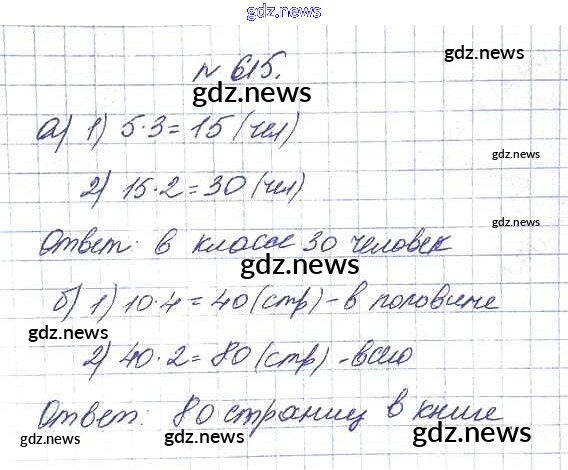 gdz.news
gdz.news
N 615.
gdz.news
а) 1) 5·3=15 (чел)
gdz.news
2) 15·2=30 (чел)
gdz.news
Ответ: в классе 30 человек
gdz.news
б) 1) 10·4=40 (стр) - в половине
gdz.news
2) 40·2=80 (стр) - всего
gdz.news
Ответ: 80 страниц в книге
gdz.news gdz.news gdz.news